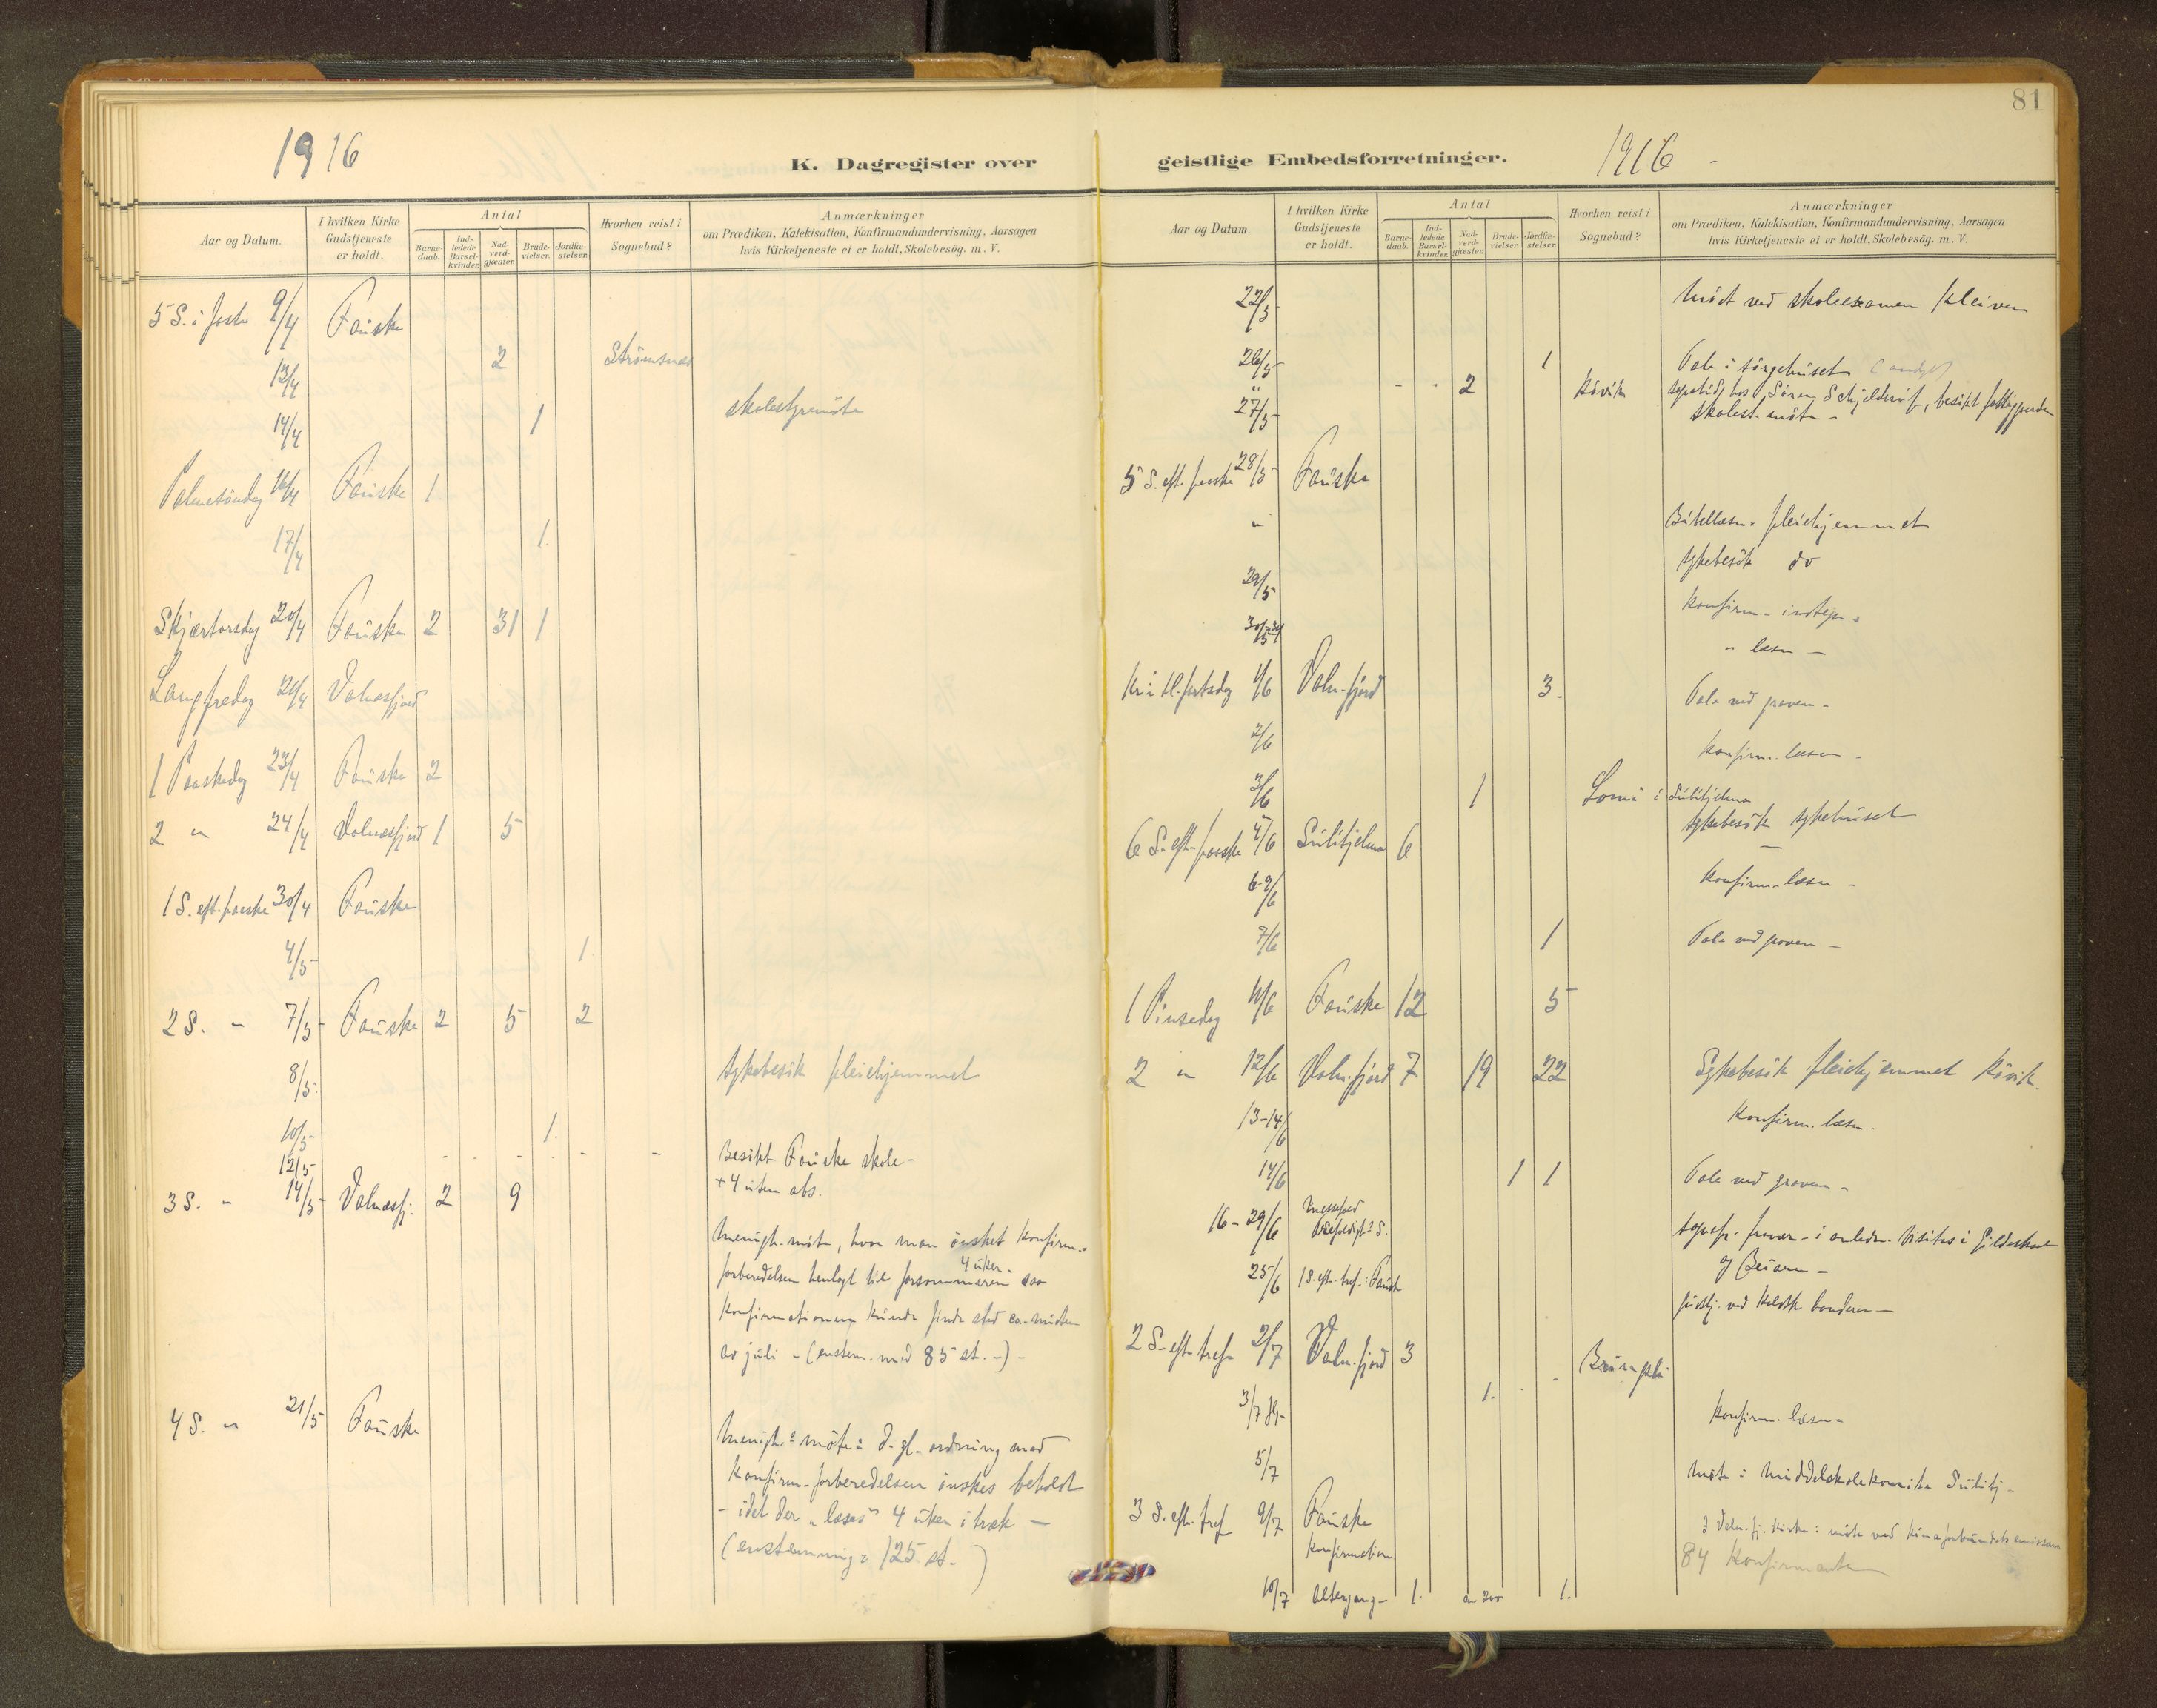 1916
K. Dagregister over
Aar og Datum.
I hvilken Kirke Gudstjeneste er holdt.
Antal
Barne-daab.
Ind-ledede Barsel-kvinder.
Nad-verd-gjæster.
Brude-vielser.
Jordfæ-stelser.
Hvorhen reist i Sognebud?
Anmærkninger
om Prædiken, Katekisation, Konfirmandundervisning, Aarsagen
hvis Kirketjeneste ei er holdt, Skolebesög. m. V.
5 S. i faste 9/4 Fauske
13/4 2 Strömsnes
14/4 1 skolestyremöte
Palmesöndag 16/4 Fauske 1
17/4 1.
Skjærtorsdag 20/4 Fauske 2 31 1
Langfredag 21/4 Valnesfjord
1 Paaskedag 23/4 Fauske 2
2 " 24/4 Valnesfjord 1 5
1 S. eft. paaske 30/4 Fauske
4/5 1
2 S. " 7/5 Fauske 2 5 2
8/5 Sykebesök pleiehjemmet
10/5 1.
12/5 Besökt Fauske skole
3 S. " 14/5 Valnesfj. 2 9 + 4 uten abs.
Menigh. möte, hvor man önsket konfirm.
forberedelsen henlagt til forsommeren 4 uker saa
konfirmationen kunde finde sted ca. midten
av juli - (enstem. med 85 st. -) -
4 S. " 21/5 Fauske
Menigh. möte: d. gl. ordning med
konfirm. forberedelsen önskes beholdt
- idet der "læses" 4 uker i træk -
(enstemmig: 125 st. )
81
geistlige Embedsforretninger.
1916 -
Aar og Datum.
I hvilken Kirke Gudstjeneste er holdt.
Antal
Barne-daab.
Ind-ledede Barsel-kvinder.
Nad-verd-gjæster.
Brude-vielser.
Jordfæ-stelser.
Hvorhen reist i Sognebud?
Anmærkninger
om Prædiken, Katekisation, Konfirmandundervisning, Aarsagen
hvis Kirketjeneste ei er holdt, Skolebesög. m. V.
22/5 Möt ved skoleexamen Kleiven
26/5 1 Tale i sörgehuset
" 2 Kövik hos Sören Schjelderup, besökt
27/5 skolest. möte -
5 S. eft. paaske 28/5 Fauske
" Bibellæsn. pleiehjemmet
sykebesök do
29/5 konfirm. indtegn.
30/5 " læsn -
Kristi H.fartsdag 1/6 Valn.fjord 3. Tale ved graven -
2/6 konfirm. læsn -
3/6 1 Lomi i Sulitjelma
sykebesök sykehuset
6 S. eft. paaske 4/6 Sulitjelma 6
6-9/6 Konfirm. læsn -
7/6 1 Tale ved graven -
1 Pinsedag 11/6 Fauske 12 5
2 " 12/6 Valn.fjord 7 19 22 Sykebesök pleiehjemmet Kövik.
13-14/6 Konfirm. læsn.
14/6 1 1 Tale ved graven -
16-29/6 Messefald S. i anledn. visitas i Gildeskaal
og Beiarn -
25/6 1 S. eft. tref. Fauske
2 S. eft. tref. 2/7 Valn.fjord 3
3/7 1. Konfirm. læsn -
5/7 Möte i Middelskolekomite Sulitj -
3 S. eft. tref 9/7 Fauske
Konfirmation
I Valn.fj. kirke: möte ved Kinaforbundets emissær
84 Konfirmanter
10/7 Altergang - 1. ca 200 1.